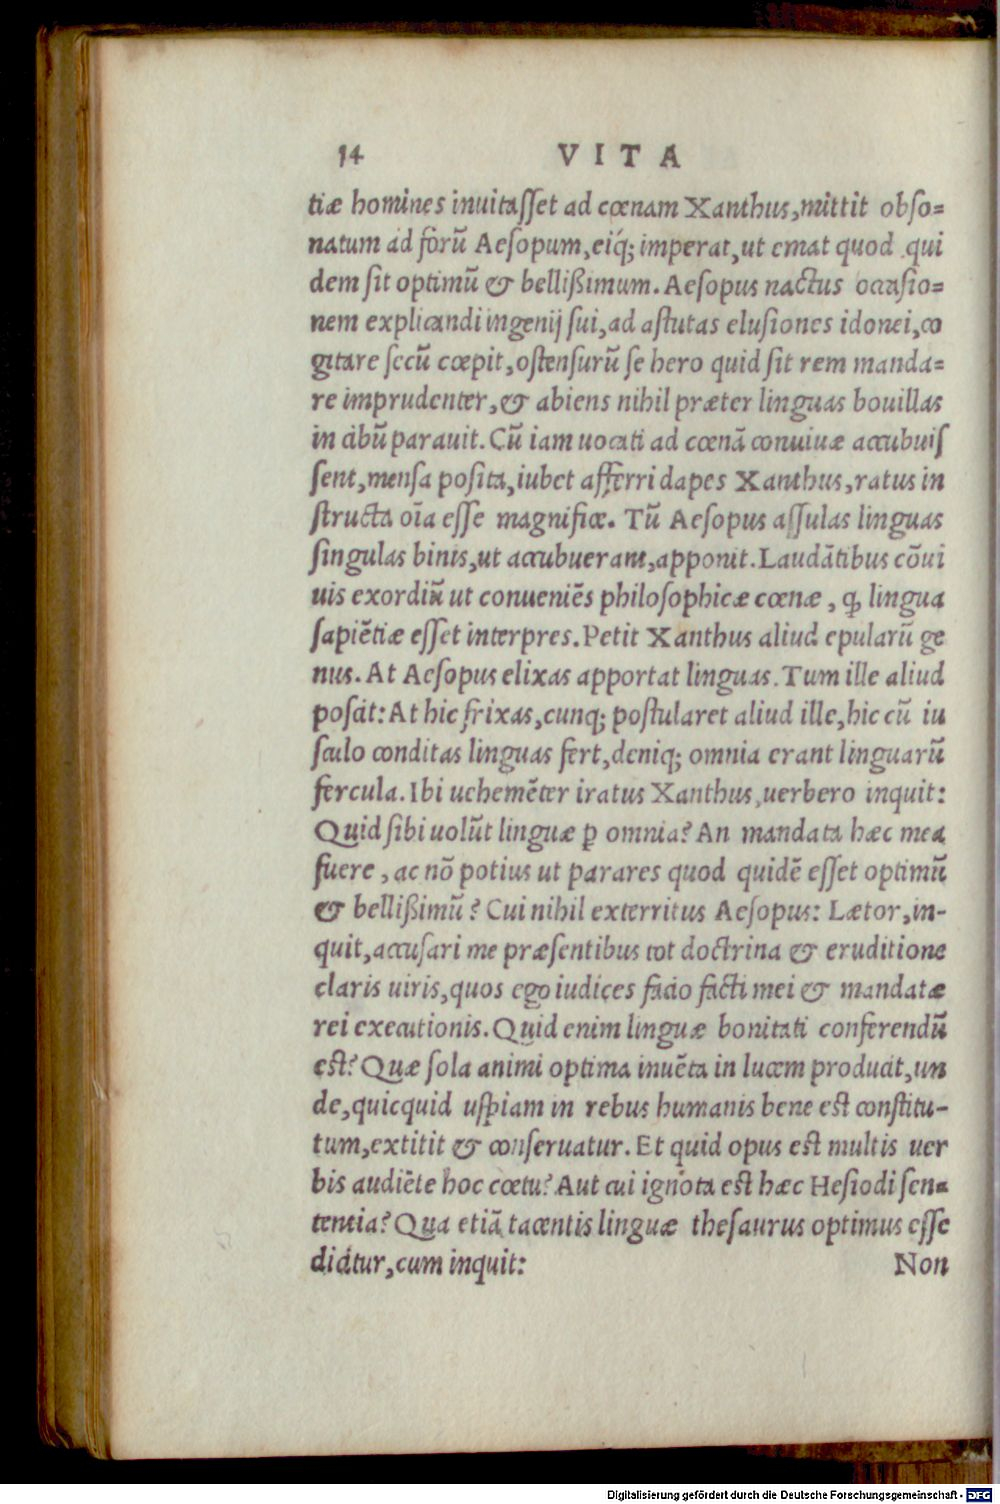 14 VITA
tiæ homines inuitasſet ad cœnam Xanthus, mittit obſo=
natum ad forũ Aeſopum, eiq́; imperat, ut emat quod qui
dem ſit optimũ & belliſsimum. Aeſopus nactus occaſio=
nem explicandi ingenij ſui, ad aſtutas eluſiones idonei, co
gitare ſecũ cœpit, oſtenſurũ ſe hero quid ſit rem manda=
re imprudenter, & abiens nihil præter linguas bouillas
in cibũ parauit. Cũ iam uocati ad cœnã conuiuæ accubuiſ
ſent, menſa poſita, iubet afferri dapes Xanthus, ratus in
ſtructa oĩa eſſe magnifice. Tũ Aeſopus aſſulas linguas
ſingulas binis, ut accubuerant, apponit. Laudãtibus cõui
uis exordiũ ut conueniẽs philoſophicæ cœnæ, ꝙ lingua
ſapiẽtiæ eſſet interpres. Petit Xanthus aliud epularũ ge
nus. At Aeſopus elixas apportat linguas. Tum ille aliud
poſcit: At hic frixas, cunq; poſtularet aliud ille, hic cũ iu
ſculo conditas linguas fert, deniq; omnia erant linguarũ
fercula. Ibi uehemẽter iratus Xanthus, uerbero inquit:
Quid ſibi uolũt linguæ ꝑ omnia? An mandata hæc mea
fuere, ac nõ potius ut parares quod quidẽ eſſet optimũ
& belliſsimũ? Cui nihil exterritus Aeſopus: Lætor, in-
quit, accuſari me præſentibus tot doctrina & eruditione
claris uiris, quos ego iudices facio facti mei & mandatæ
rei executionis. Quid enim linguæ bonitati conferendũ
est? Quæ ſola animi optima inuẽta in lucem producit, un
de, quicquid uſpiam in rebus humanis bene est conſtitu-
tum, extitit & conſeruatur. Et quid opus est multis uer
bis audiẽte hoc cœtu? Aut cui ignota est hæc Heſiodi ſen=
tentia? Qua etiã tacentis linguæ theſaurus optimus eſſe
dicitur, cum inquit: Non
Digitalisierung gefördert durch die Deutsche Forschungsgemeinschaft - DFG